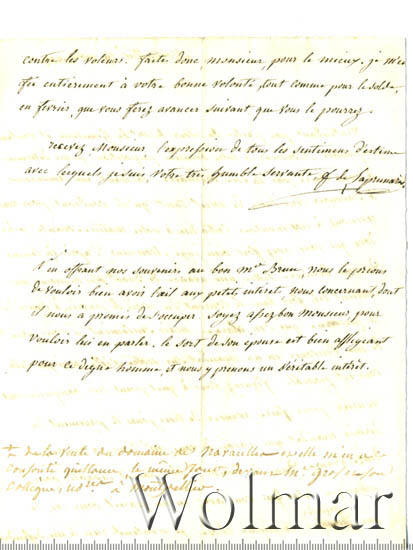 contre les voleurs. faite donc, monsieur, pour le mieux. je m'en
fie entièrement à votre bonne volonté, tout comme pour le solde,
en fevrier, que vous ferez avancer suivant que vous le pourrez.
recevez Monsieur l'expression de tous les sentimens d'estime
avec lesquels je suis, votre très humble servante
en offrant nos souvenirs, au bon Mr Brun, nous le prions
de vouloir bien avoir l'œil aux petits interet nous concernant, dont
il nous à promis de s'occuper. soyez assez bon monsieur, pour
vouloir lui en parler. le sort de son epouse est bien affligeant
pour ce digne homme, et nous y prenons un véritable intérêt.
de la vente du domaine de
quittance, le même jour, devant Me
collègue, à
Wolmar